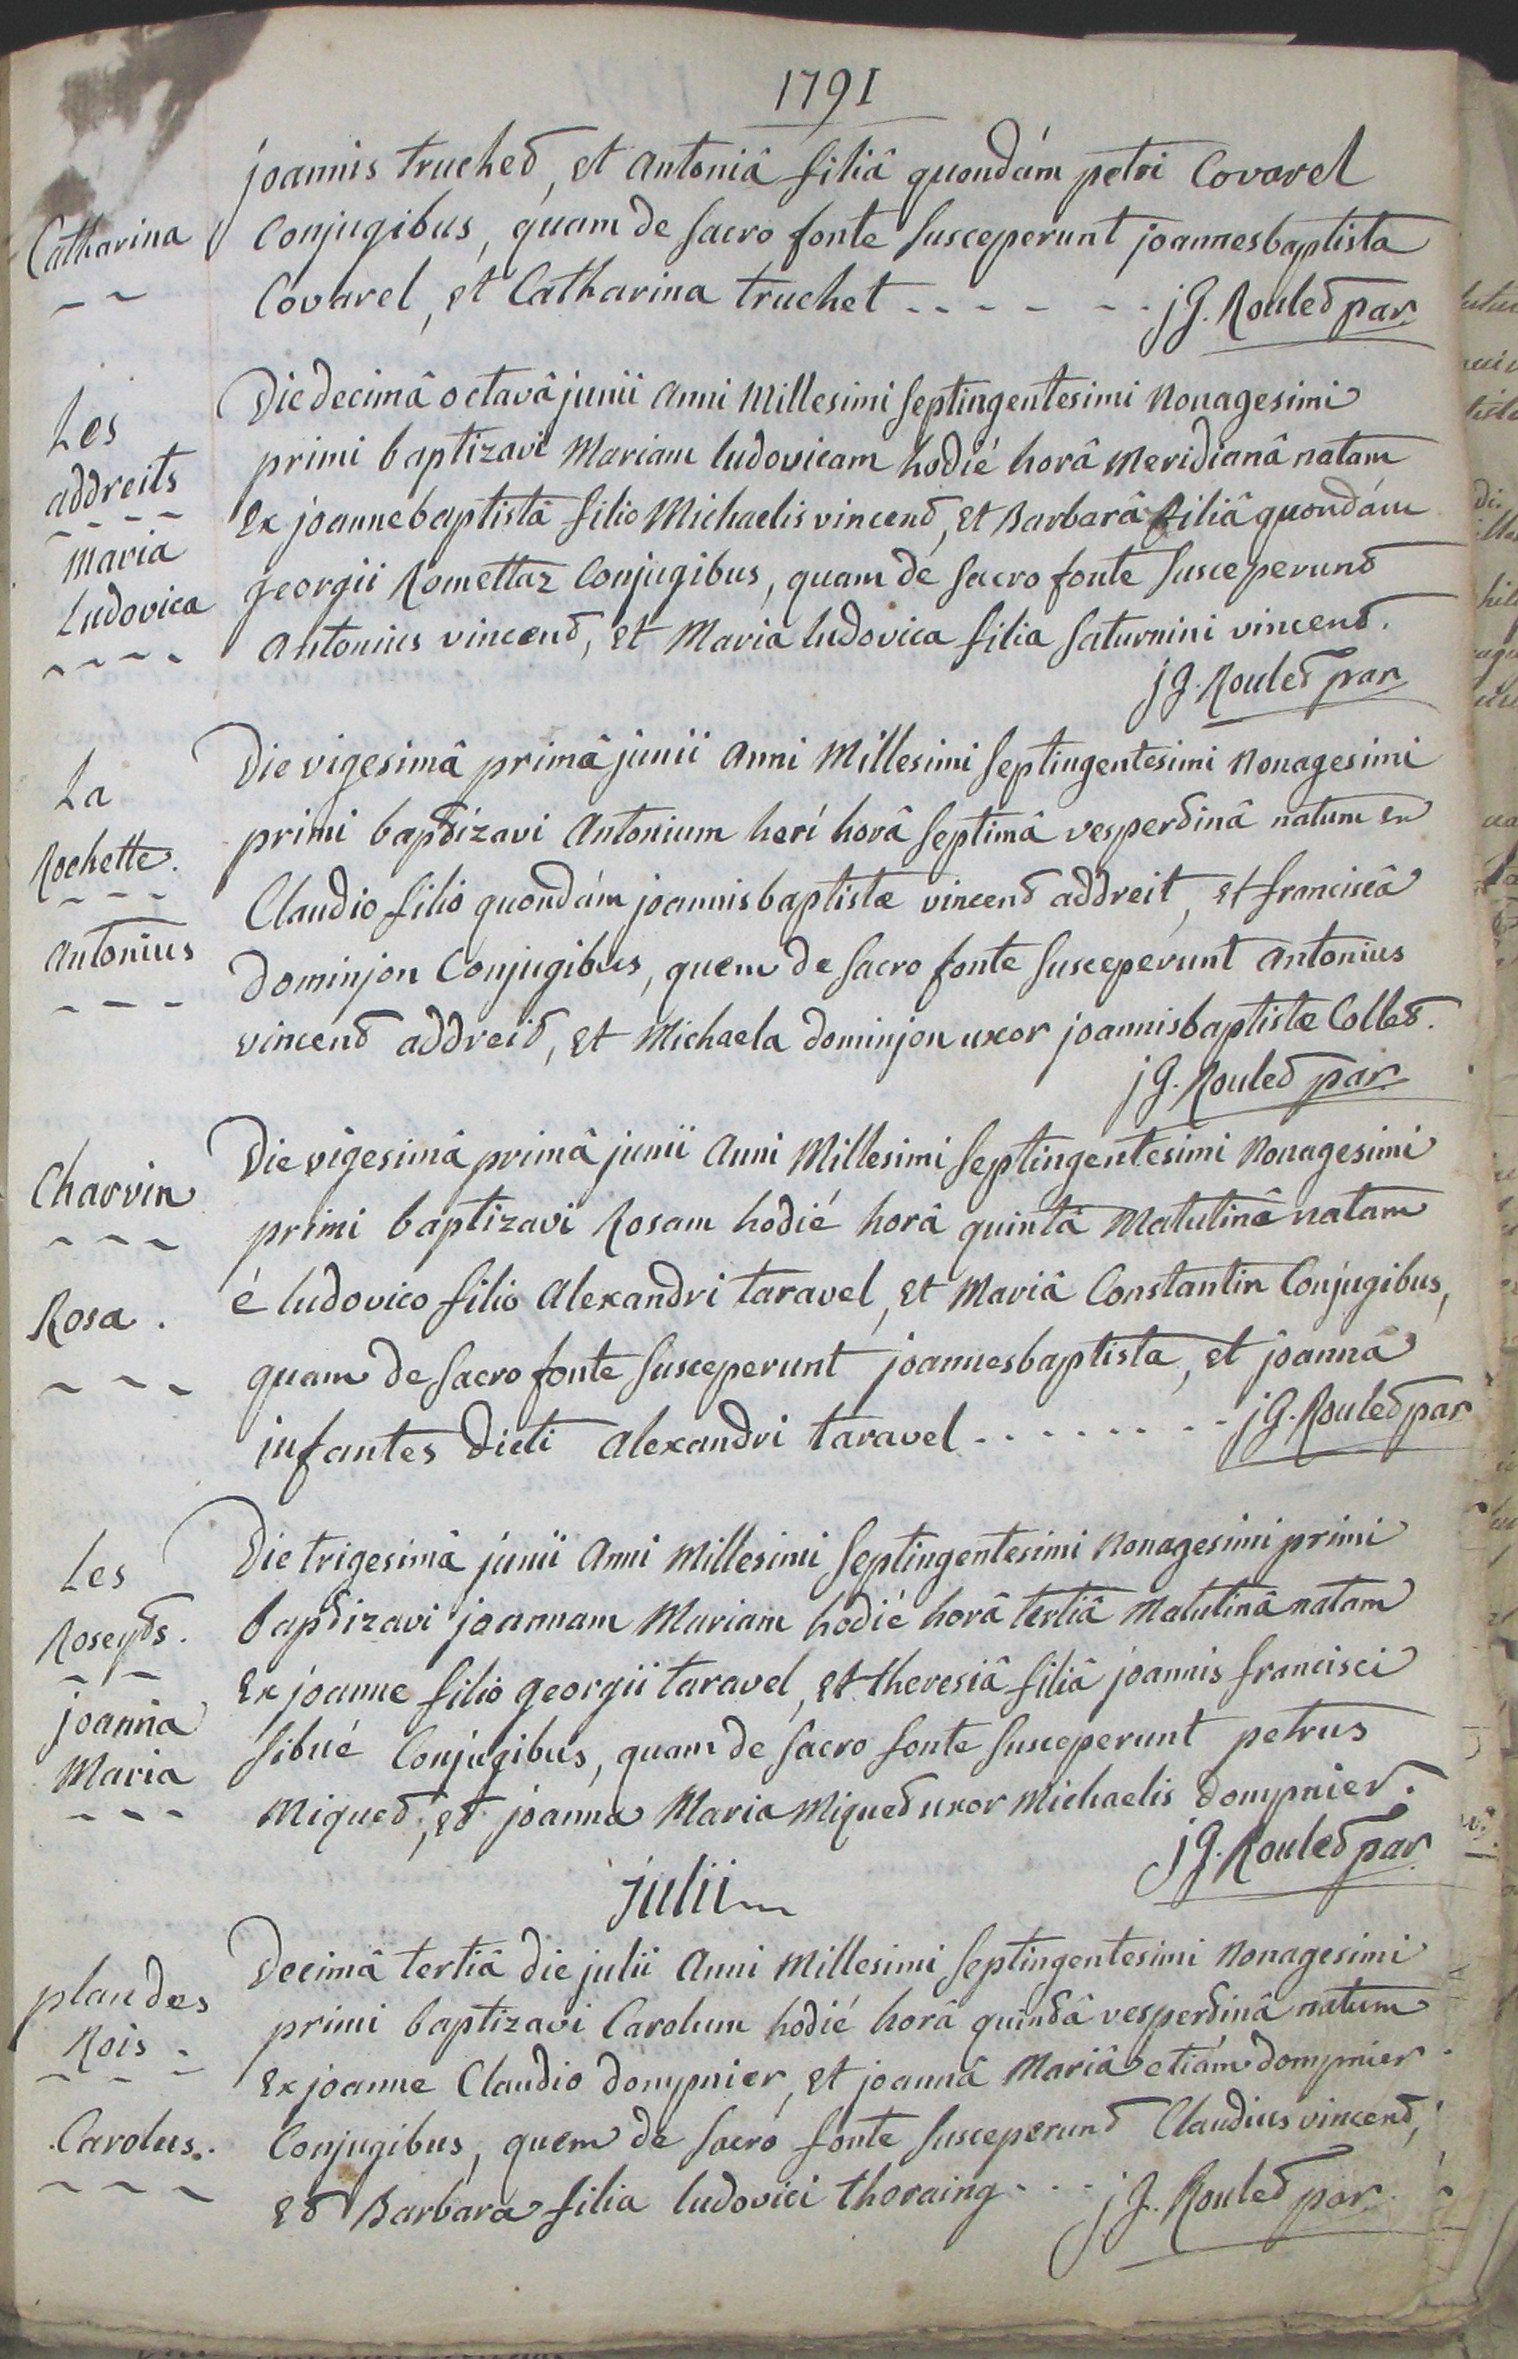 1791
joannis truchet, et antoniâ filiâ quondám petri Covarel
Catharina
Conjugibus, quam de sacro fonte susceperunt joannesbaptista
Covarel, et Catharina truchet - - - - - - jG. Roulet par
Les
addreits
Maria
Ludovica
Die decimâ octavâ junii anni Millesimi septingentesimi Nonagesimi
primi baptizavi Mariam ludovicam hodié horâ Meridianâ natam
Ex joannebaptistâ filio Michaelis vincent, et Barbarâ filiâ quondám
georgii Romettaz Conjugibus, quam de sacro fonte susceperunt
antonius vincent, et Maria ludovica filia saturnini vincent.
jG. Roulet par
La
Rochette.
antonius
Die vigesimâ primâ junii anni Millesimi septingentesimi Nonagesimi
primi baptizavi antonium heri horâ septimâ vespertinâ natum Ex
Claudio filio quondám joannisbaptistæ vincent addreit, et franciscâ
dominjon Conjugibus, quem de sacro fonte susceperunt antonius
vincent addreit, et Michaela dominjon uxor joannisbaptistæ Collet.
jG. Roulet par
Charvin
Rosa.
Die vigesimâ primâ junii anni Millesimi septingentesimi Nonagesimi
primi baptizavi Rosam hodié horâ quintâ Matutinâ natam
é ludovico filio alexandri taravel, et Mariâ Constantin Conjugibus,
quam de sacro fonte susceperunt joannesbaptista, et joannâ
infantes dicti alexandri taravel - - - - - - - jG. Roulet par
Les
Roseyts.
joanna
Maria
Die trigesimâ junii anni Millesimi septingentesimi Nonagesimi primi
baptizavi joannam Mariam hodié horâ tertiâ Matutinâ natam
Ex joanne filio georgii taravel, et theresiâ filiâ joannis francisci
sibué Conjugibus, quam de sacro fonte susceperunt petrus
Miquet, et joanna Maria Miquet uxor Michaelis dompnier.
jG. Roulet par
julii
plan des
Rois
Carolus.
Decimâ tertiâ die julii anni Millesimi septingentesimi Nonagesimi
primi baptizavi Carolum hodié horâ quintâ vespertinâ natum
Ex joanne Claudio dompnier, et joannâ Mariâ etiám dompnier
Conjugibus, quem de sacro fonte susceperunt Claudius vincent,
et Barbara filia ludovici thoraing - - - jG. Roulet par